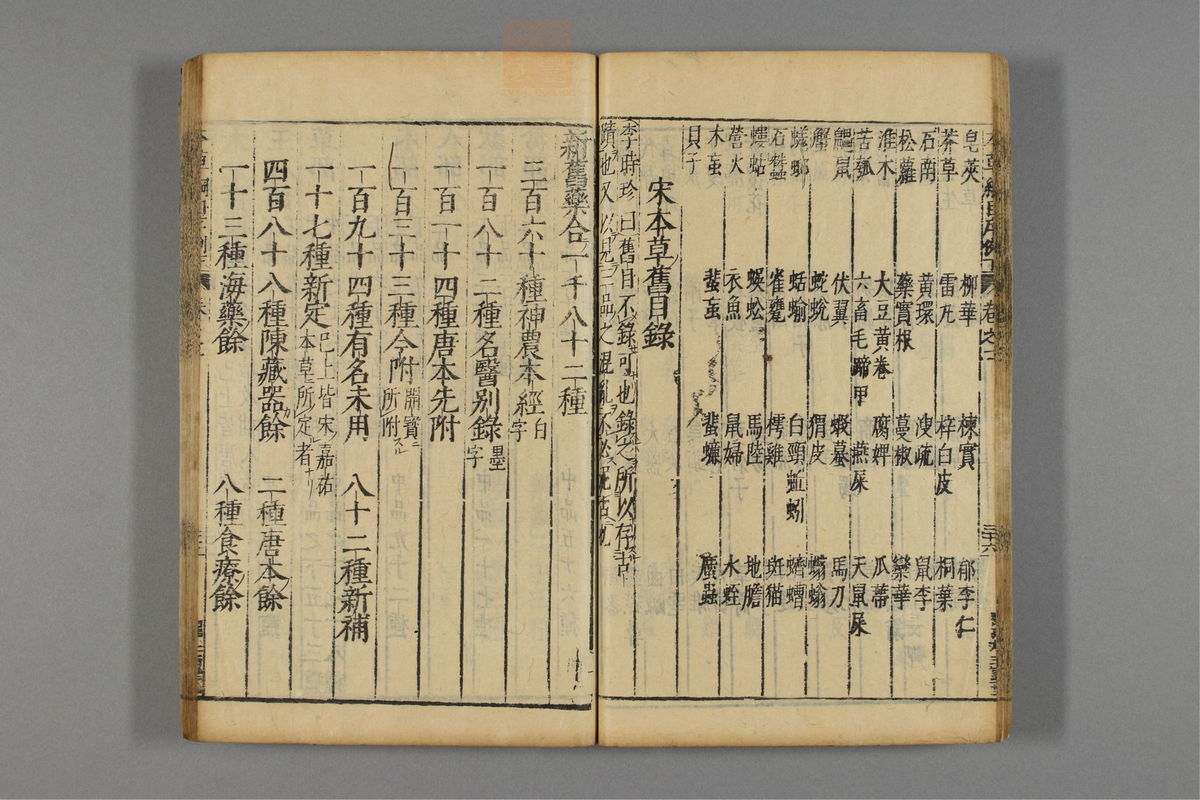 皂莢 柳華 楝實 郁李仁
莽草 雷丸 梓白皮 桐葉
石南 黃環 溲疏 鼠李
松蘿 藥實根 蔓椒 欒華
淮木 大豆黃卷 腐婢 瓜蒂
苦瓠 六畜毛蹄甲 燕屎 天鼠屎
鼺鼠 伏翼 蝦蟇 馬刀
蟹 蛇蛻 猬皮 蠮螉
蜣蜋 蛞蝓 白頸蚯蚓 蠐螬
石蠶 雀甕 樗雞 斑猫
螻蛄 蜈蚣 馬陸 地膽
螢火 衣魚 鼠婦 水蛭
木䖟 蜚䖟 蜚蠊 䗪蟲
貝子
宋本草舊目錄
李時珍曰舊目不錄可也錄之所以存古
蹟也又以見三品之混亂不必泥古
新舊藥合一千八十二種
三百六十種神農本經白字
一百八十二種名醫别錄墨字
一百一十四種唐本先附
一百三十三種今附開寶ニ所附スル
一百九十四種有名未用 八十二種新補
一十七種新定已上皆宋嘉祐本草ニ所定ル者ナリ
四百八十八種陳藏器カ餘 二種唐本餘
一十三種海藥餘 八種食療餘